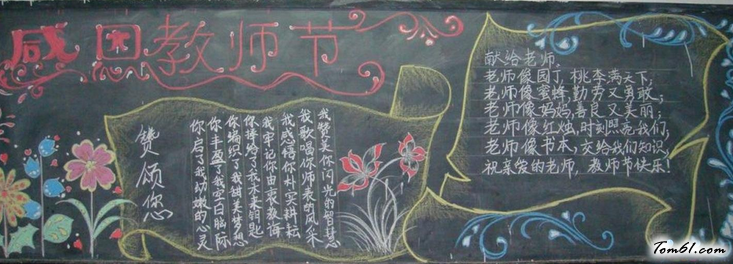 感恩教师节
赞颂您
你启了我幼嫩的心灵
你丰盈了我空白脑际
你编织了我甜美梦想
你捧给了我未来钥匙
我牢记你由衷教诲
我感悟你朴实耕耘
我歌唱你师表的风采
我赞美你闪光的智慧
献给老师,
老师像园丁,桃李满天下;
老师像蜜蜂,勤劳又勇敢;
老师像妈妈,善良又美丽;
老师像红烛,时刻照亮我们;
老师像书本,交给我们知识,
祝亲爱的老师,教师节快乐!
Tom61.com